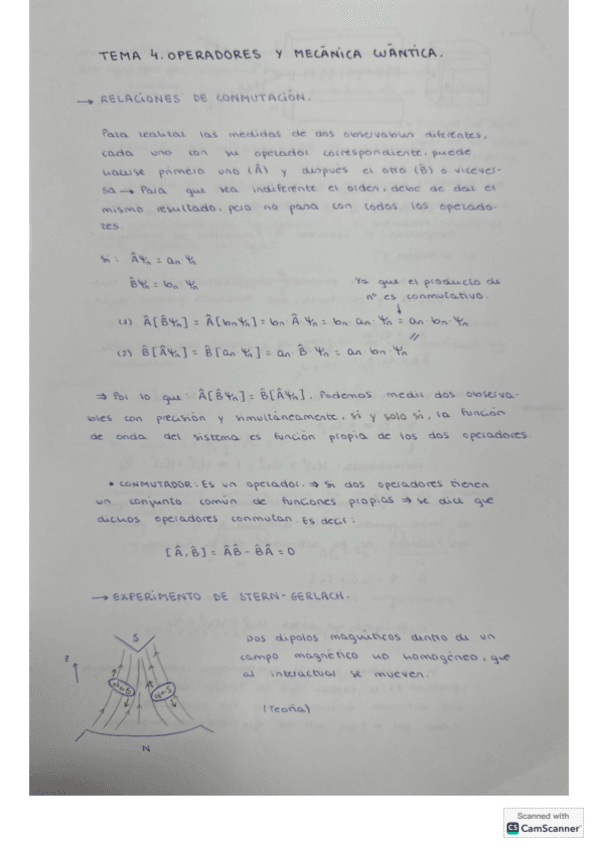 TEMA 4. OPERADORES Y MECÁNICA CUÁNTICA.
→ RELACIONES DE CONMUTACIÓN.
Para realizar las medidas de dos observables diferentes,
cada uno con su operador correspondiente, puede
hacerse primero uno (Â) y después el otro (B̂) o vicever-
sa → Para que sea indiferente el orden, debe de dar el
mismo resultado, pero no pasa con todos los operado-
res.
Si: ÂΨn = an Ψn
B̂Ψn = bn Ψn
Ya que el producto de
nº es conmutativo.
(1) Â[B̂Ψn] = Â[bnΨn] = bn·Â·Ψn = bn·an·Ψn = an·bn·Ψn
(2) B̂[ÂΨn] = B̂[an Ψn] = an·B̂·Ψn = an·bn·Ψn
⇒ Por lo que: Â[B̂Ψn] = B̂[ÂΨn]. Podemos medir dos observa-
bles con precisión y simultáneamente, si y solo si, la función
de onda del sistema es función propia de los dos operadores.
• CONMUTADOR: Es un operador. ⇒ Si dos operadores tienen
un conjunto común de funciones propias ⇒ se dice que
dichos operadores conmutan. Es decir:
[Â,B̂] = ÂB̂ - B̂Â = 0
→ EXPERIMENTO DE STERN-GERLACH.
S
Dos dipolos magnéticos dentro de un
campo magnético no homogéneo, que
al interactuar se mueven.
(Teoría)
N
Scanned with
CS CamScanner